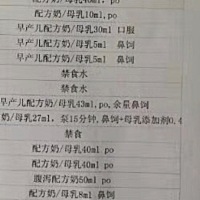 配方奶/母乳40ml, po
配方奶/母乳10ml, po
早产儿配方奶/母乳30ml 口服
早产儿配方奶/母乳5ml 鼻饲
早产儿配方奶/母乳5ml 鼻饲
禁食水
禁食水
早产儿配方奶/母乳43ml, po, 余量鼻饲
奶/母乳27ml, 泵15分钟, 鼻饲+母乳添加剂0.4
禁食
配方奶/母乳40ml po
配方奶/母乳40ml po
腹泻配方奶50ml po
配方奶/母乳8ml 鼻饲